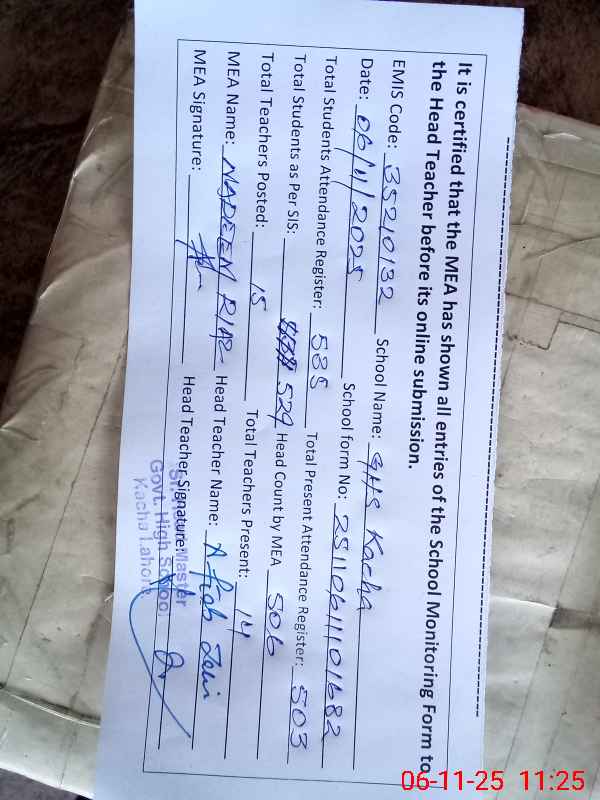 It is certified that the MEA has shown all entries of the School Monitoring Form to
the Head Teacher before its online submission.
EMIS Code: 35210132 School Name: GHS Kacha
Date: 06/11/2025 School form No: 2511061101682
Total Students Attendance Register: 585 Total Present Attendance Register: 503
Total Students as Per SIS: 529 Head Count by MEA 506
Total Teachers Posted: 15 Total Teachers Present: 14
MEA Name: NADEEM RIAZ Head Teacher Name: Aftab
MEA Signature: Head Teacher Signature:
Master
Govt. High School
Kacha Lahore
06-11-25 11:25